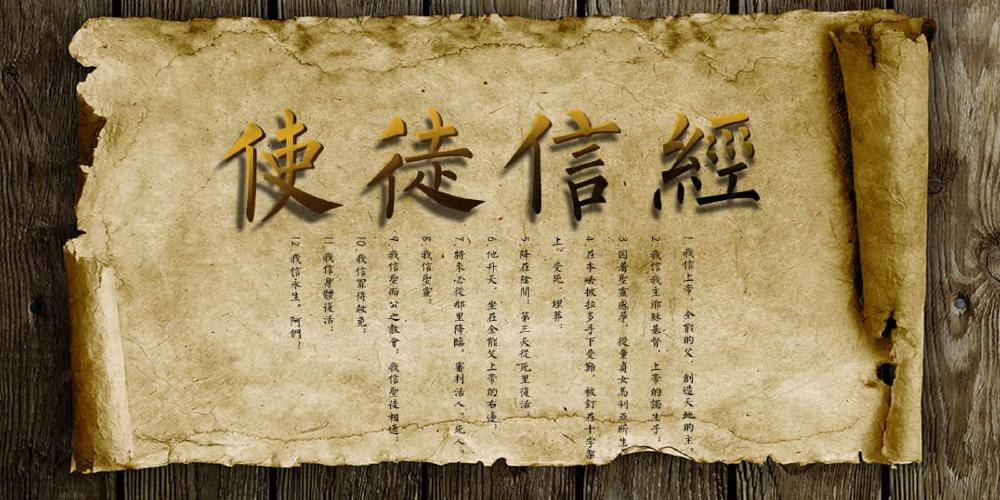 使徒信經
1. 我信上帝，全能的父，創造天地的主。
2. 我信我主耶穌基督，上帝的獨生子；
3. 因着聖靈感孕，從童貞女馬利亞所生
4. 在本丟彼拉多手下受難，被釘在十字架
上，受死，埋葬；
5. 降在陰間；第三天從死里復活
6. 他升天，坐在全能父上帝的右邊；
7. 將來必從那里降臨，審判活人，死人
8. 我信聖靈；
9. 我信聖而公之教會；我信聖徒相通；
10. 我信罪得赦免；
11. 我信身體復活；
12. 我信永生。阿們！